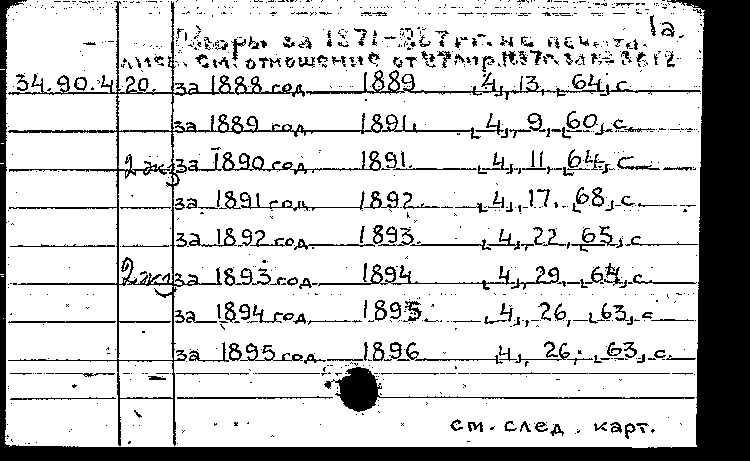 1а.
Обзоры за 1871–887 гг. не печата-
лись. См. отношение от
34.90.4 20. за 1888 год. 1889 [4], 13, [64] с.
за 1889 год. 1891. [4], 9, [60] с.
2 экз за 1890 год. 1891. [4], 11, [64] с.
за 1891 год. 1892. [4], 17, [68] с.
за 1892 год. 1893. [4], 22, [65] с
2 экз за 1893 год. 1894. [4], 29, [64] с.
за 1894 год, 1895. [4], 26, [63] с
за 1895 год. 1896. [4], 26, [63] с.
см. след. карт.